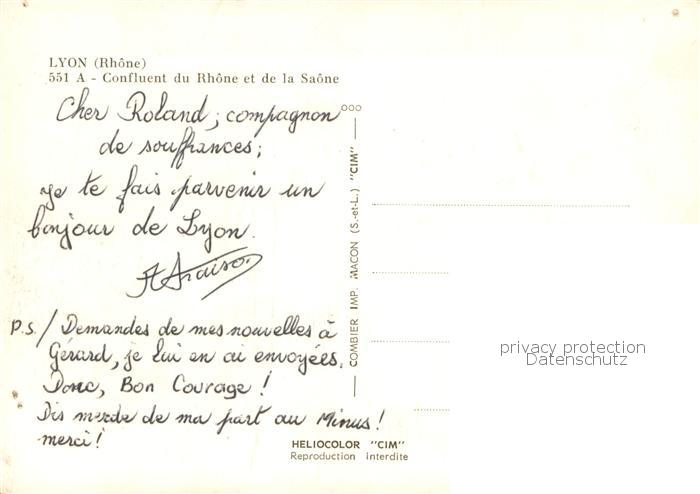 LYON (Rhône)
551 A - Confluent du Rhône et de la Saône
Cher Roland, compagnon
de souffrances;
je te fais parvenir un
bonjour de Lyon.
P.S./ Demandes de mes nouvelles à
Gérard, je lui en ai envoyées.
Donc, Bon Courage !
Dis merde de ma part au Minus!
merci!
COMBIER IMP. MACON (S.-et-L.) "CIM"
privacy protection
Datenschutz
HELIOCOLOR "CIM"
Reproduction interdite